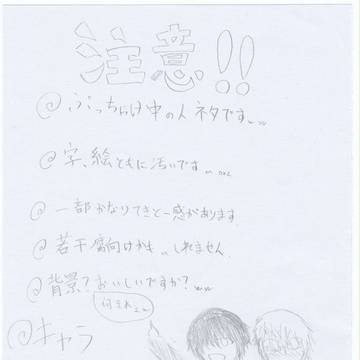 注意!!
@ ぶっちゃけ中の人ネタです
@ 字、絵ともに汚いです
@ 一部かなりてきとー感があります
@ 若干腐向けかも しれません
@ 背景?おいしいですか?
何それ
@キャラ